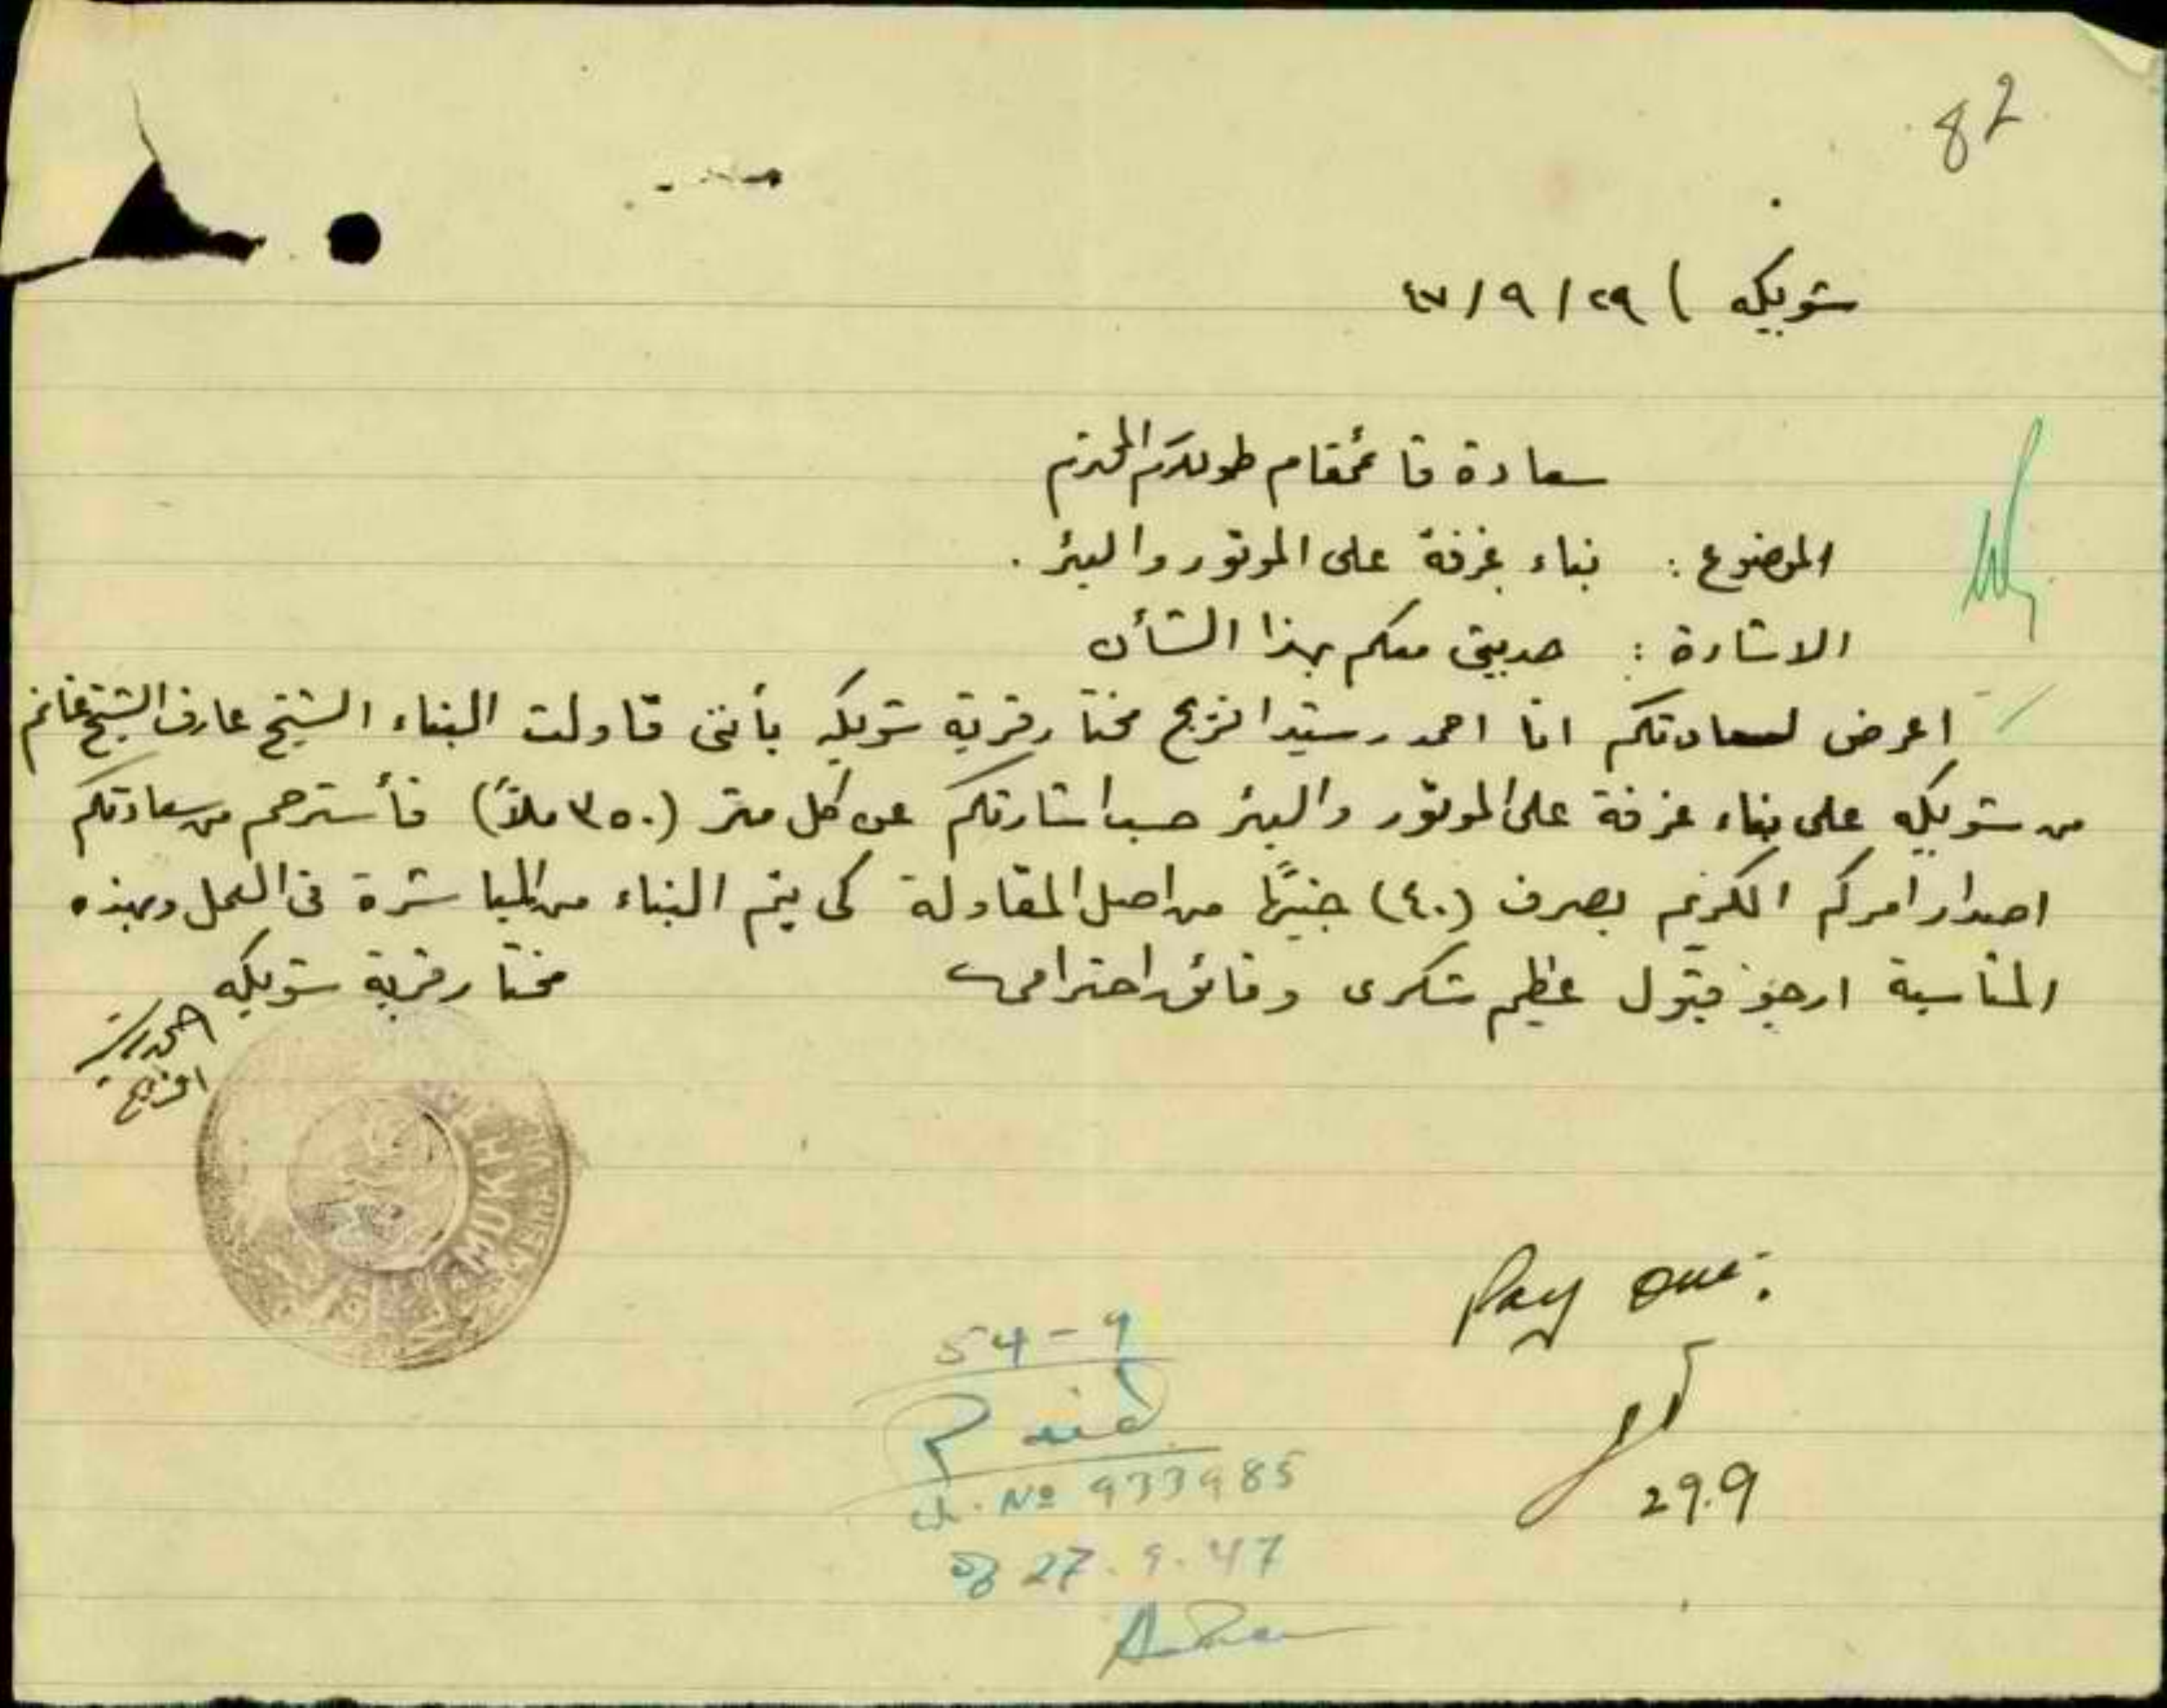 82
شويكه ) ٢٩ / ٩ / ٤٧
سعادة قائمقام طولكرم المحترم
الموضوع : بناء غرفة على الموتور والبئر .
الاشارة : حديثي معكم بهذا الشأن
اعرض لسعادتكم انا احمد رشيد المختار قرية شويكه بأنني قاولت البناء الشيخ عارف الشيخ غانم
من شويكه على بناء غرفة على الموتور والبئر حسب اشارتكم عن كل متر (٣٥٠ ملاً) فأسترحم من سعادتكم
اصدار امركم الكريم بصرف (٤٠) جنيهًا من اصل المقاولة كي يتم البناء من المباشرة في العمل وبهذه
المناسبة ارجو قبول عظيم شكري وفائق احترامي
مختار قرية شويكه
احمد رشيد
MUKH
Pay one.
29.9
54-9
Paid
ch. No 933985
of 27.9.47